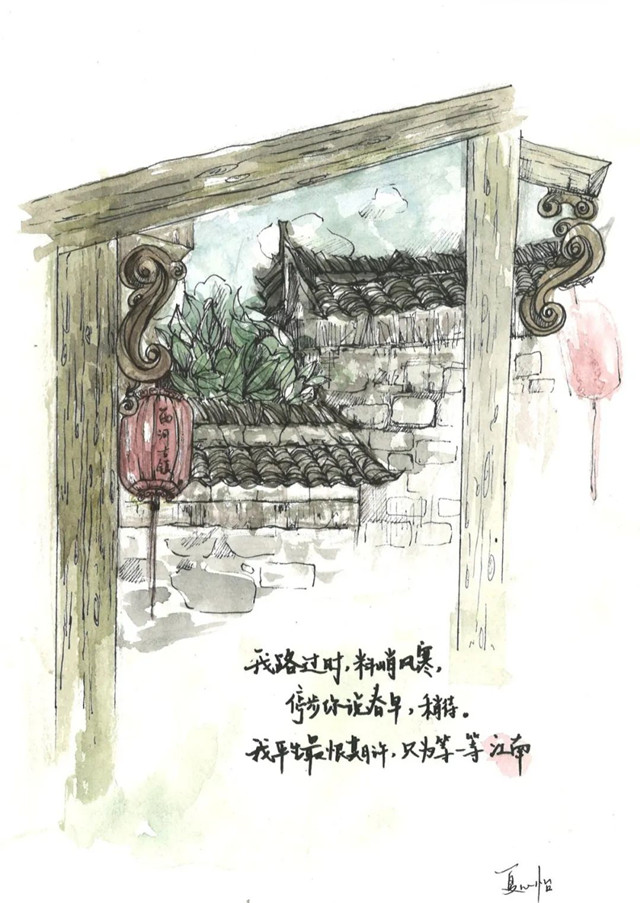 西河古镇
我路过时，料峭风寒，
停步你说春早，稍待。
我平生最恨期许，只为等一等江南
夏心怡